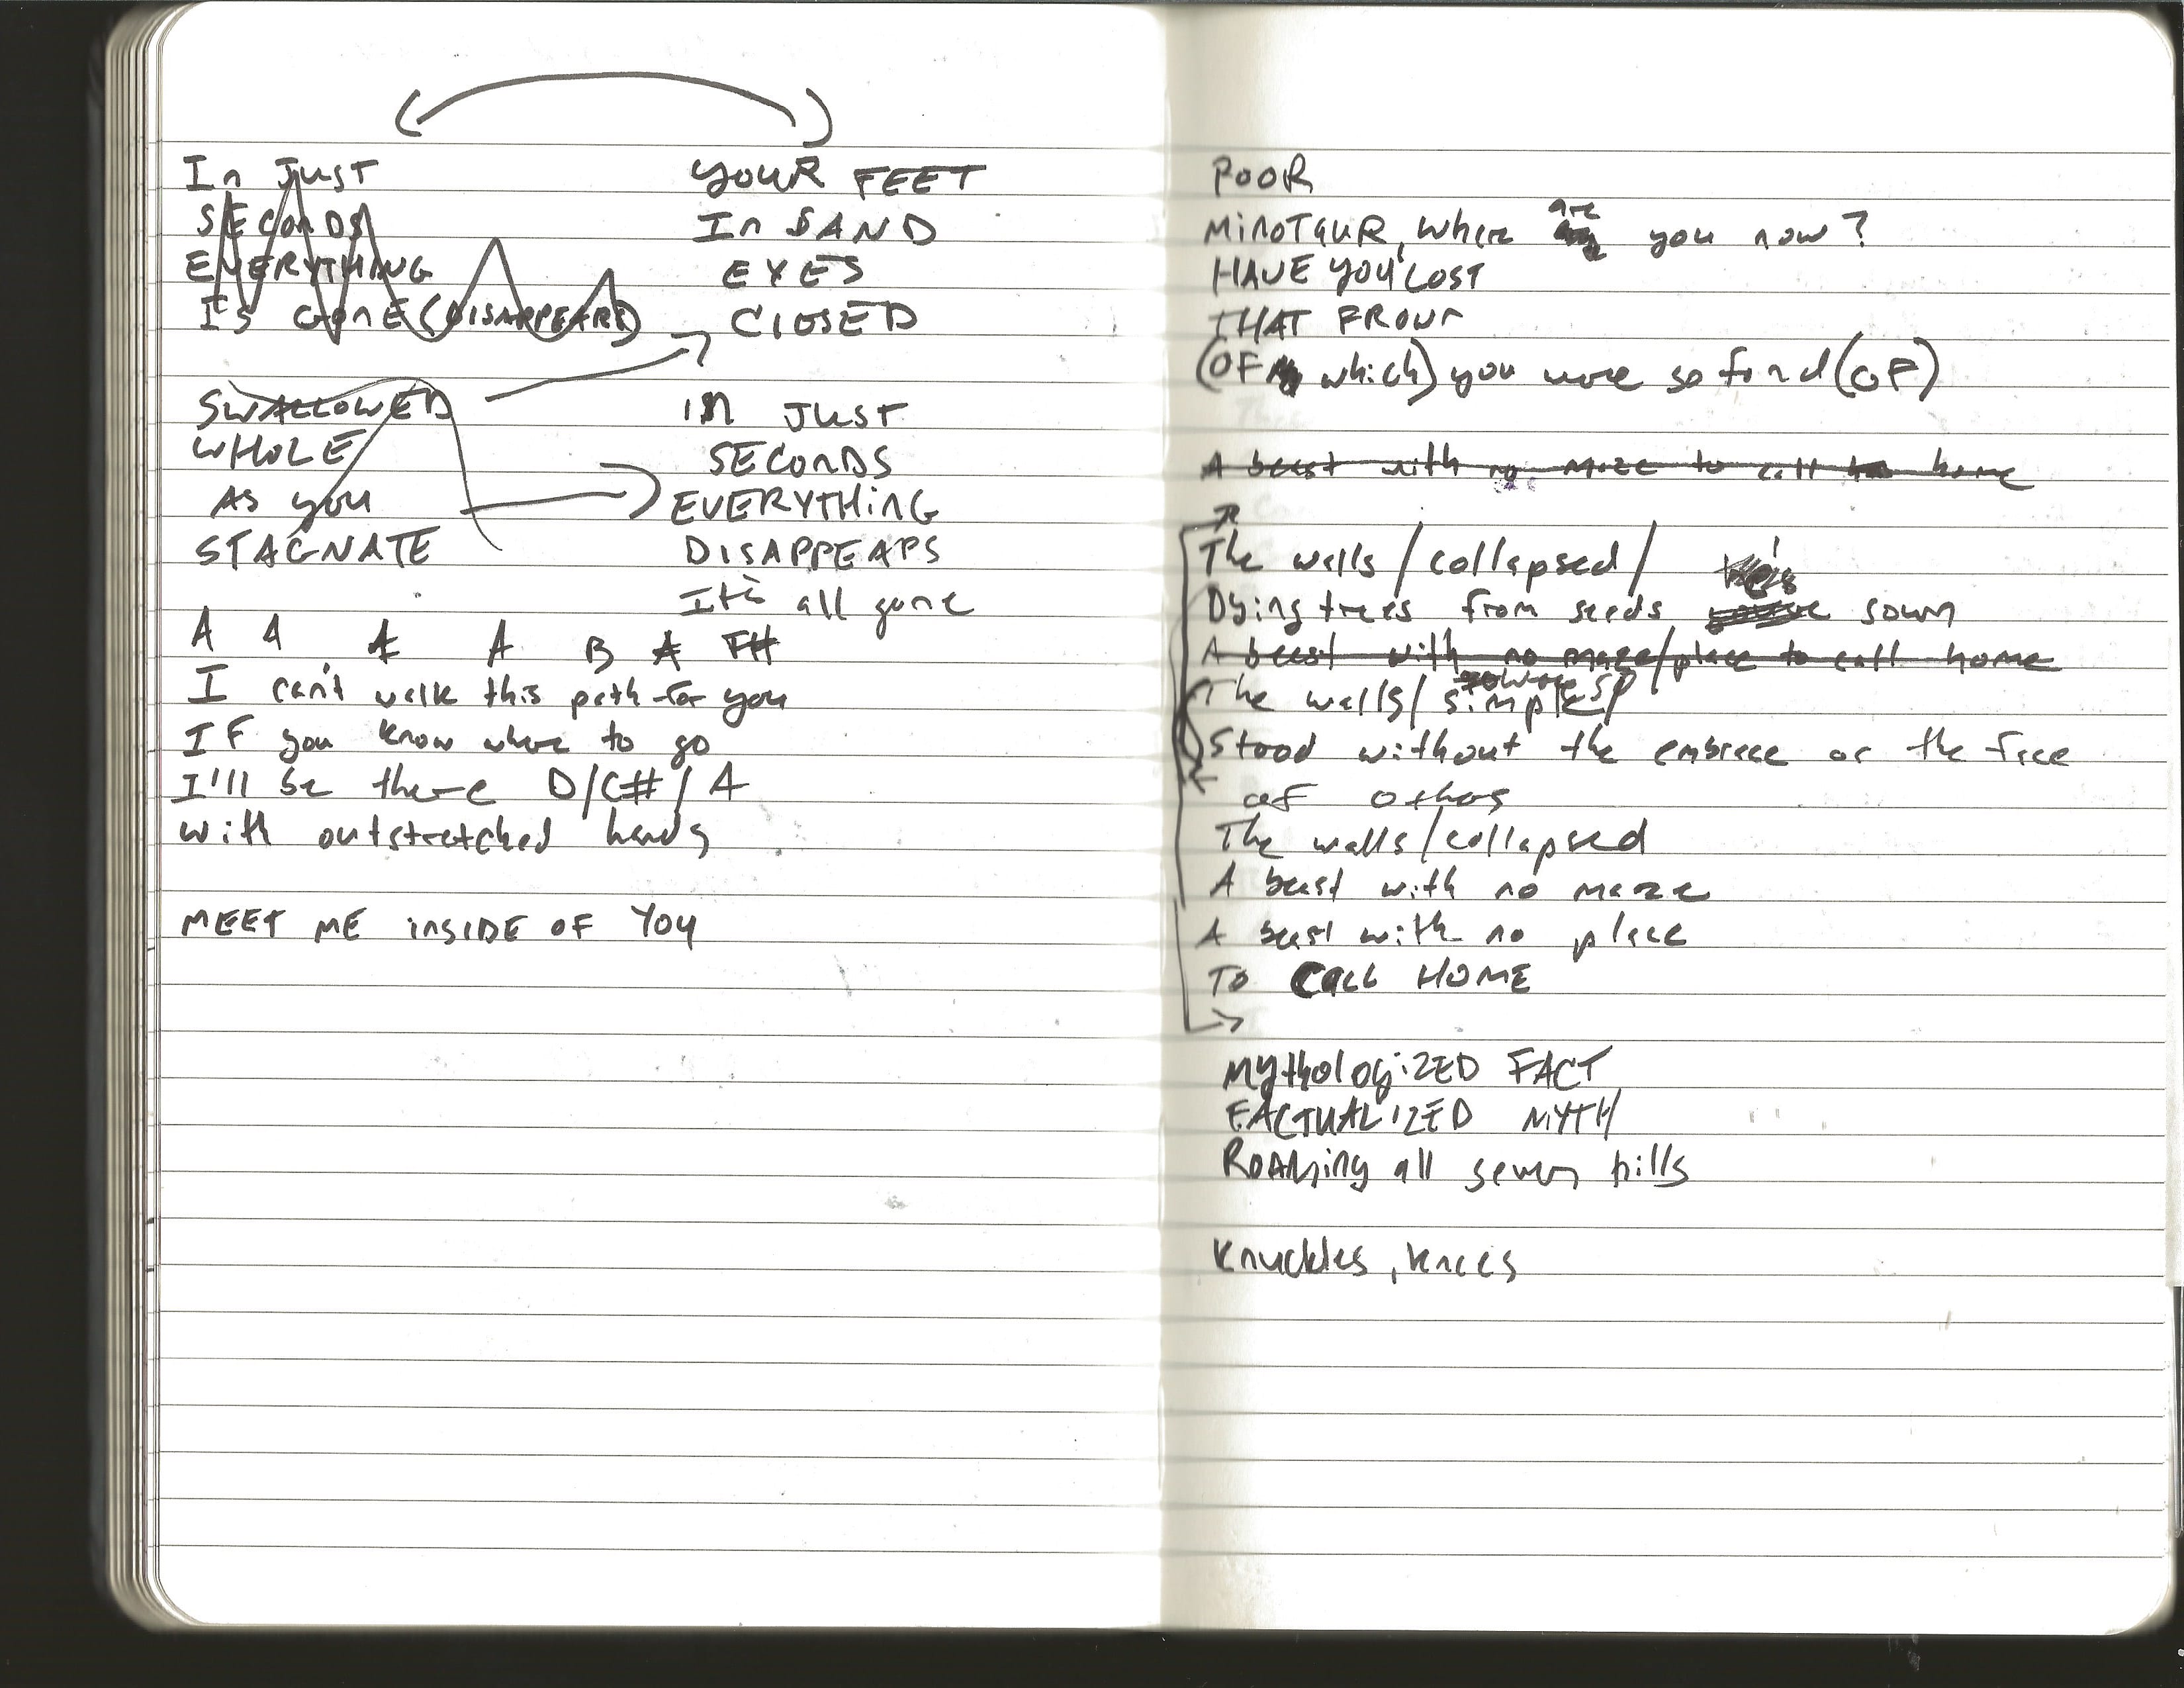 In JUST
SECONDS
EVERYTHING
IS GONE (DISAPPEARS)
SWALLOWED
WHOLE
AS YOU
STAGNATE
YOUR FEET
In SAND
EYES
CLOSED
IN JUST
SECONDS
EVERYTHING
DISAPPEARS
It's all gone
A A A A B A F#
I can't walk this path for you
IF you know where to go
I'll be there D/C#/A
with outstretched hands
MEET ME INSIDE OF YOU
POOR
MINOTAUR, where are you now?
HAVE YOU LOST
THAT FROWN
(OF which) you were so fond (OF)
A beast with no maze to call home
The walls/collapsed/
Dying trees from seeds sown
A beast with no maze/place to call home
The walls/ simple/
Stood without the embrace or the face
of others
The walls/collapsed
A beast with no maze
A beast with no place
To CALL HOME
MythologIZED FACT
FACTUALIZED MYTH
ROAMing all seven hills
Knuckles, knees